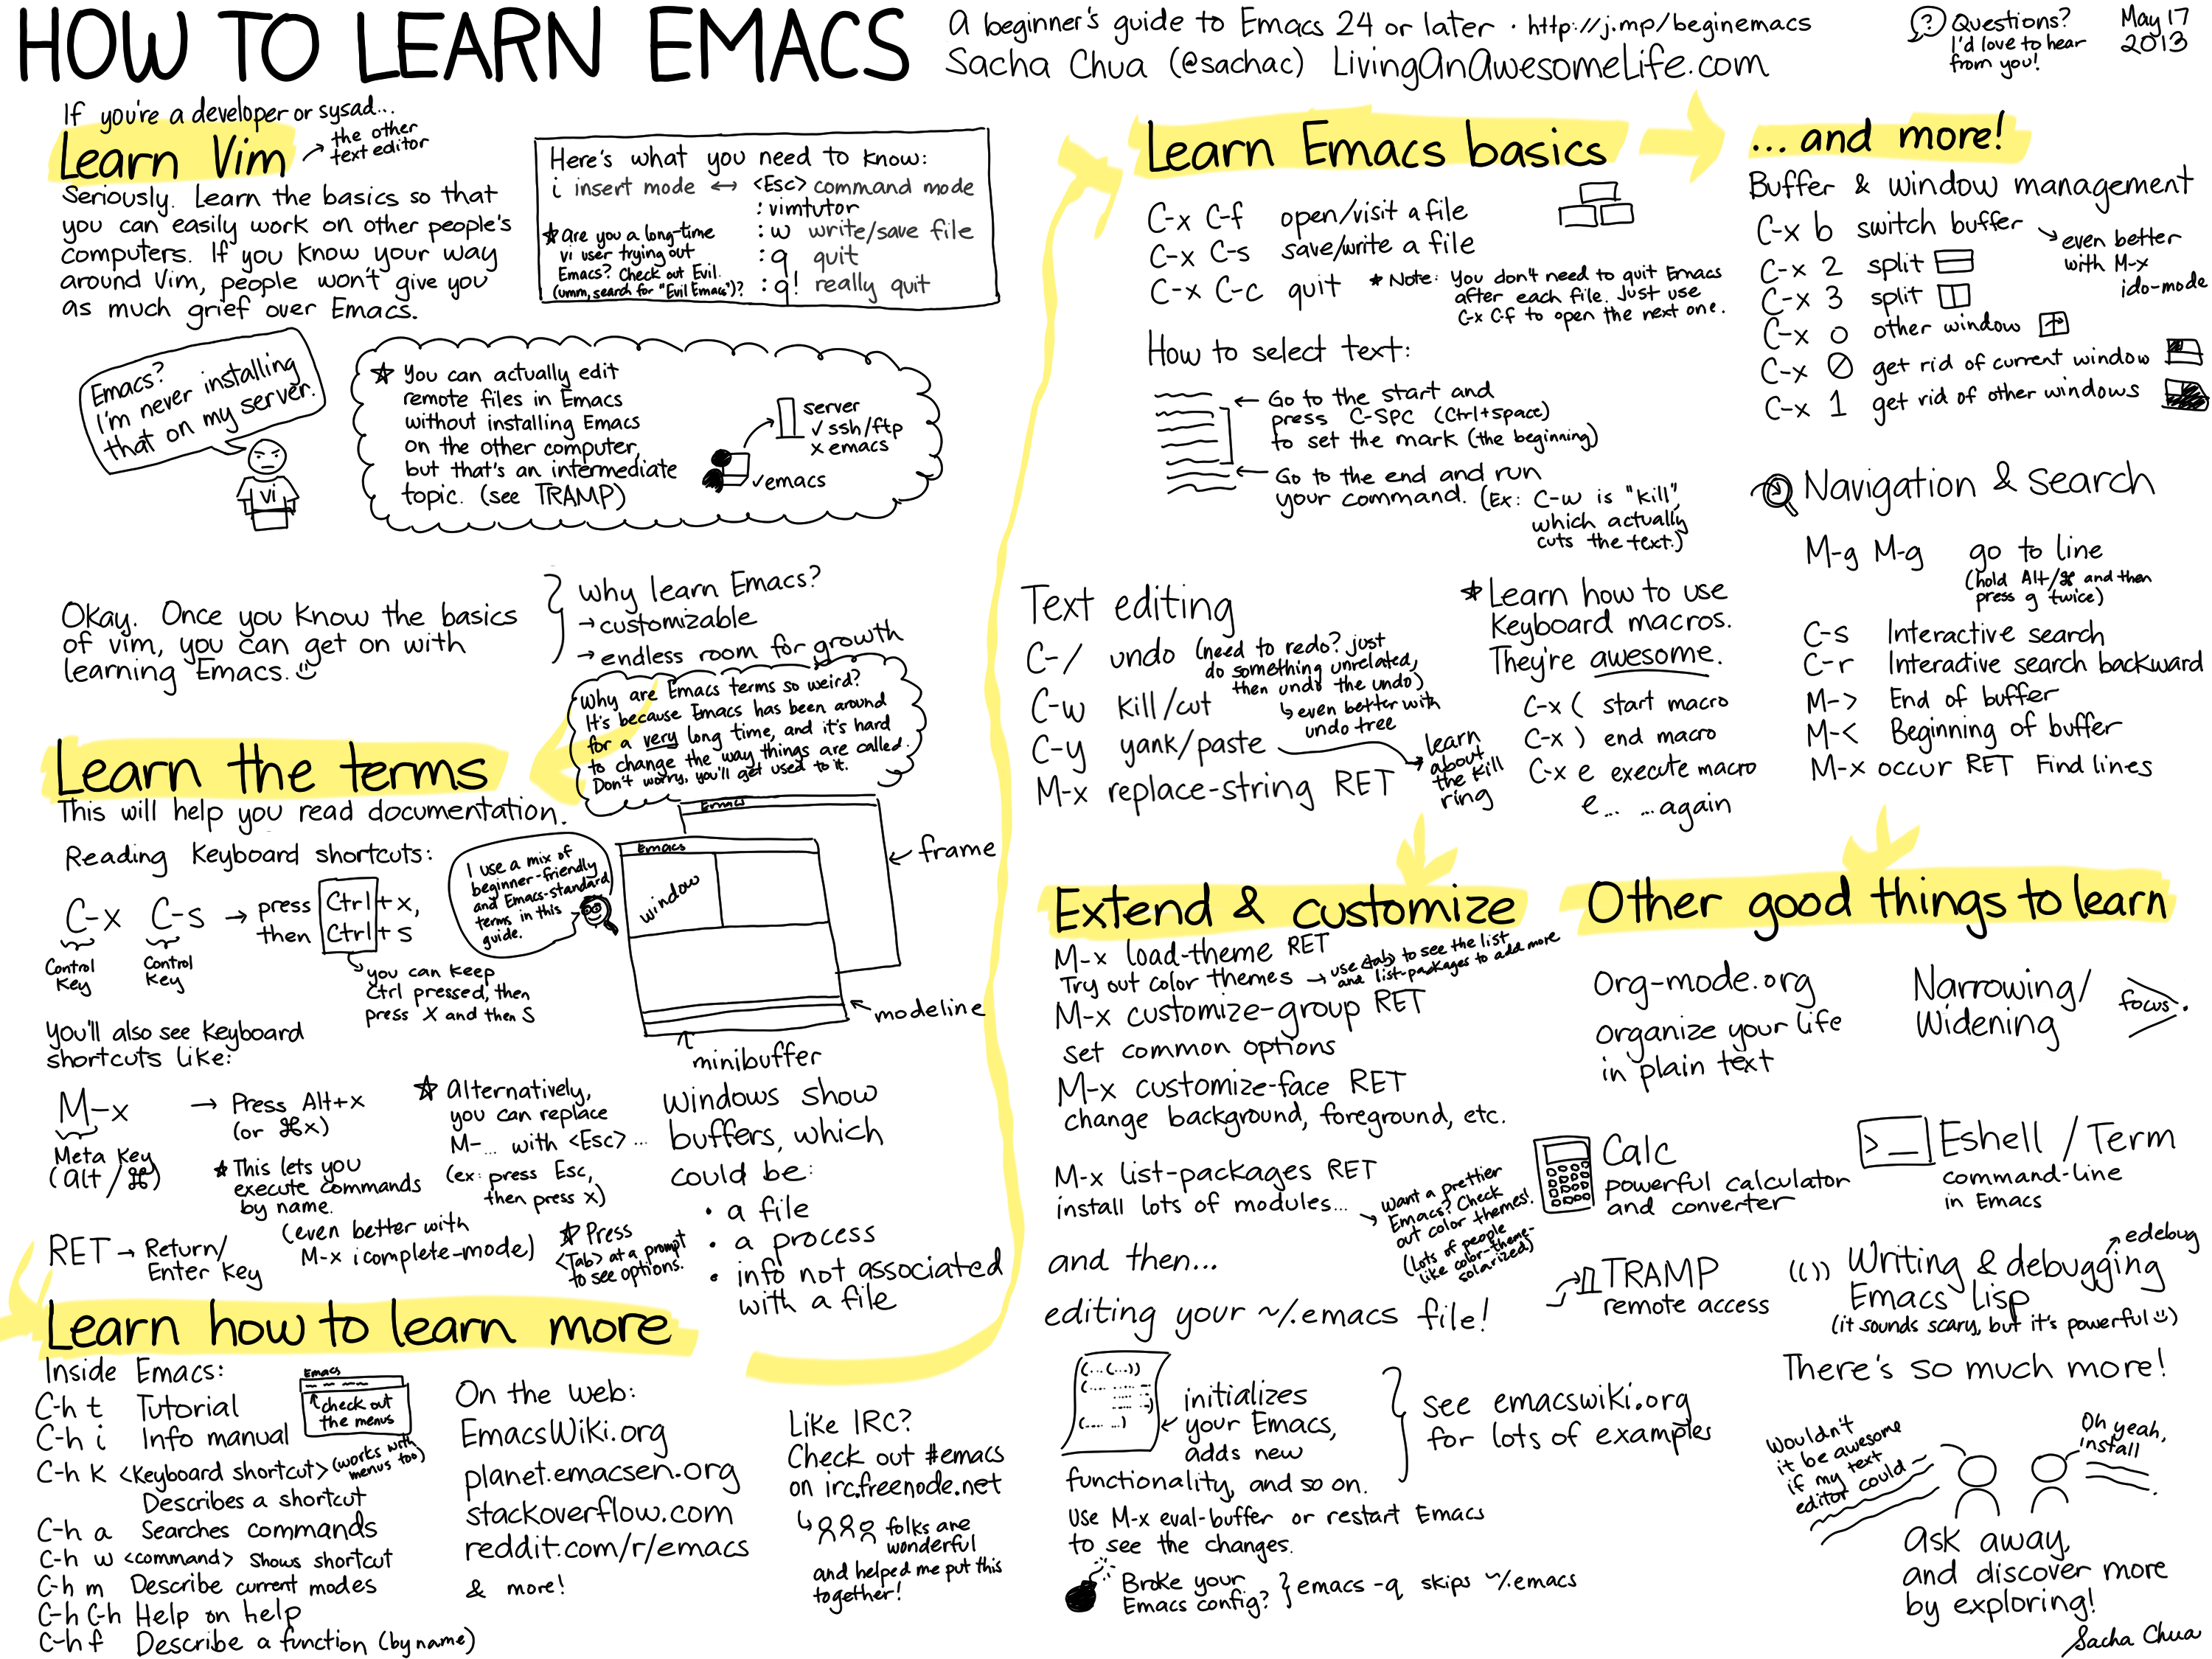 HOW TO LEARN EMACS
A beginner's guide to Emacs 24 or later · http://j.mp/beginemacs
Sacha Chua (@sachac) LivingAnAwesomeLife.com
? Questions?
I'd love to hear
from you!
May 17
2013
If you're a developer or sysad...
Learn Vim
→ the other
text editor
Seriously. Learn the basics so that
you can easily work on other people's
computers. If you know your way
around Vim, people won't give you
as much grief over Emacs.
Here's what you need to know:
i insert mode ↔ <Esc> command mode
:vimtutor
:w write/save file
:q quit
:q! really quit
★ Are you a long-time
vi user trying out
Emacs? Check out Evil.
(umm, search for "Evil Emacs")?
Emacs?
I'm never installing
that on my server.
vi
★ You can actually edit
remote files in Emacs
without installing Emacs
on the other computer,
but that's an intermediate
topic. (see TRAMP)
server
✓ ssh/ftp
x emacs
✓emacs
Okay. Once you know the basics
of vim, you can get on with
learning Emacs.
Why learn Emacs?
→ customizable
→ endless room for growth
Why are Emacs terms so weird?
It's because Emacs has been around
for a very long time, and it's hard
to change the way things are called.
Don't worry, you'll get used to it.
Learn the terms
This will help you read documentation.
Reading keyboard shortcuts:
C-x C-s → press Ctrl+x,
then Ctrl+s
Control
key
Control
key
you can keep
Ctrl pressed, then
press X and then S
I use a mix of
beginner-friendly
and Emacs-standard
terms in this
guide.
Emacs
Emacs
window
← frame
modeline
minibuffer
You'll also see keyboard
shortcuts like:
M-x → Press Alt+x
(or ⌘x)
Meta key
(alt/⌘)
★ This lets you
execute commands
by name.
(even better with
M-x icomplete-mode)
★ Alternatively,
you can replace
M-... with <Esc>...
(ex: press Esc,
then press x)
RET → Return/
Enter key
★ Press
<Tab> at a prompt
to see options.
Windows show
buffers, which
could be:
• a file
• a process
• info not associated
with a file
Learn how to learn more
Inside Emacs:
C-h t Tutorial
C-h i Info manual
C-h k <keyboard shortcut> (works with
menus too)
Describes a shortcut
C-h a Searches commands
C-h w <command> shows shortcut
C-h m Describe current modes
C-h C-h Help on help
C-h f Describe a function (by name)
Emacs
check out
the menus
On the web:
EmacsWiki.org
planet.emacsen.org
stackoverflow.com
reddit.com/r/emacs
& more!
Like IRC?
Check out #emacs
on irc.freenode.net
folks are
wonderful
and helped me put this
together!
Learn Emacs basics
C-x C-f open/visit a file
C-x C-s save/write a file
C-x C-c quit
★ Note: You don't need to quit Emacs
after each file. Just use
C-x C-f to open the next one.
How to select text:
← Go to the start and
press C-SPC (Ctrl+space)
to set the mark (the beginning)
← Go to the end and run
your command. (Ex: C-w is "kill",
which actually
cuts the text.)
Text editing
C-/ undo (need to redo? just
do something unrelated,
then undo the undo)
even better with
undo tree
C-w kill/cut
C-y yank/paste
learn
about
the kill
ring
M-x replace-string RET
★ Learn how to use
keyboard macros.
They're awesome.
C-x ( start macro
C-x ) end macro
C-x e execute macro
e... ...again
...and more!
Buffer & window management
C-x b switch buffer
even better
with M-x
ido-mode
C-x 2 split
C-x 3 split
C-x o other window
C-x 0 get rid of current window
C-x 1 get rid of other windows
Navigation & search
M-g M-g go to line
(hold Alt/⌘ and then
press g twice)
C-s Interactive search
C-r Interactive search backward
M-> End of buffer
M-< Beginning of buffer
M-x occur RET Find lines
Extend & customize
M-x load-theme RET
Try out color themes → use <tab> to see the list
and list-packages to add more
M-x customize-group RET
set common options
M-x customize-face RET
change background, foreground, etc.
M-x list-packages RET
install lots of modules...
Want a prettier
Emacs? Check
out color themes!
(Lots of people
like color-theme-
solarized)
and then...
editing your ~/.emacs file!
(...(...))
(....
(.... ...)
initializes
← your Emacs,
adds new
functionality, and so on.
see emacswiki.org
for lots of examples
Use M-x eval-buffer or restart Emacs
to see the changes.
Broke your
Emacs config? } emacs -q skips ~/.emacs
Other good things to learn
Org-mode.org
organize your life
in plain text
Narrowing/
Widening
focus.
Calc
powerful calculator
and converter
>_ Eshell / Term
command-line
in Emacs
TRAMP
remote access
(()) Writing & debugging
Emacs Lisp
edebug
(it sounds scary, but it's powerful)
There's so much more!
Wouldn't
it be awesome
if my text
editor could
Oh yeah,
install
ask away,
and discover more
by exploring!
Sacha Chua